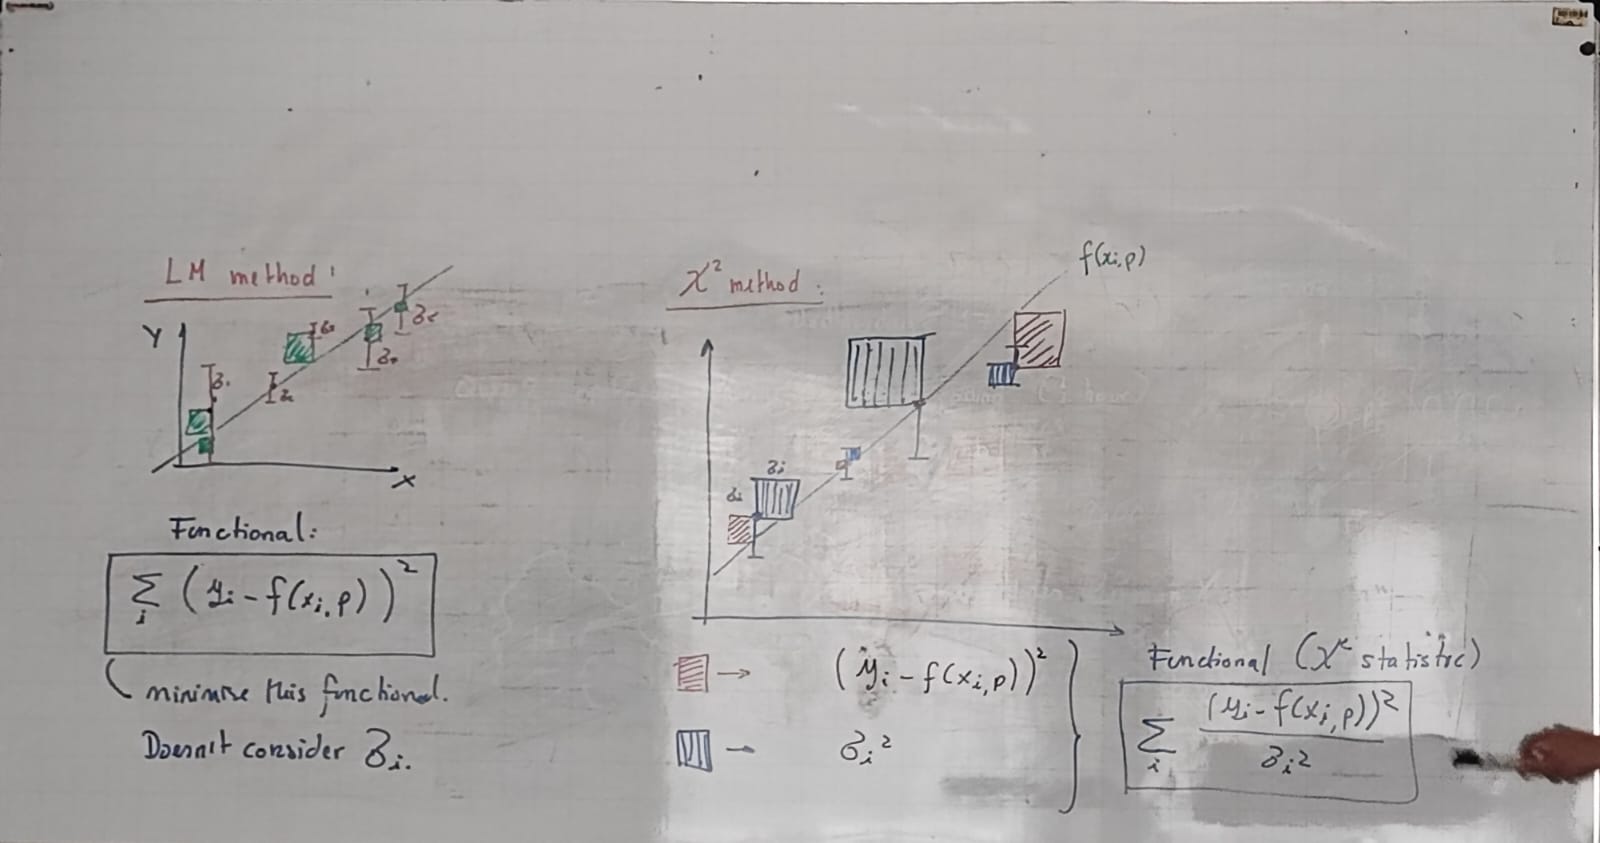 LM method:
Y
X
Functional:
∑i (yi - f(xi, p))²
minimise this functional.
Doesn't consider σi.
χ² method:
f(xi, p)
σi
σi
→ (yi - f(xi, p))²
→ σi²
Functional (χ² statistic)
∑i (yi - f(xi, p))² / σi²